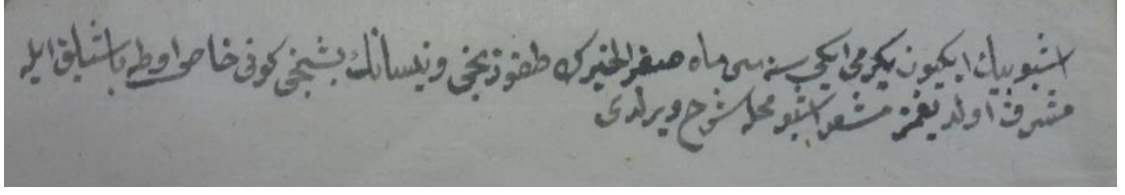 اشبو بيك ايكيوز يكرمي ايكي سنه سى ماه صفر الخيرك طقوزنجى ونيسانك بشنجى كونى خاص اوطه باشيلق ايله
مشرف اولديغمز مشعر اشبو محله شرح ويرلدى